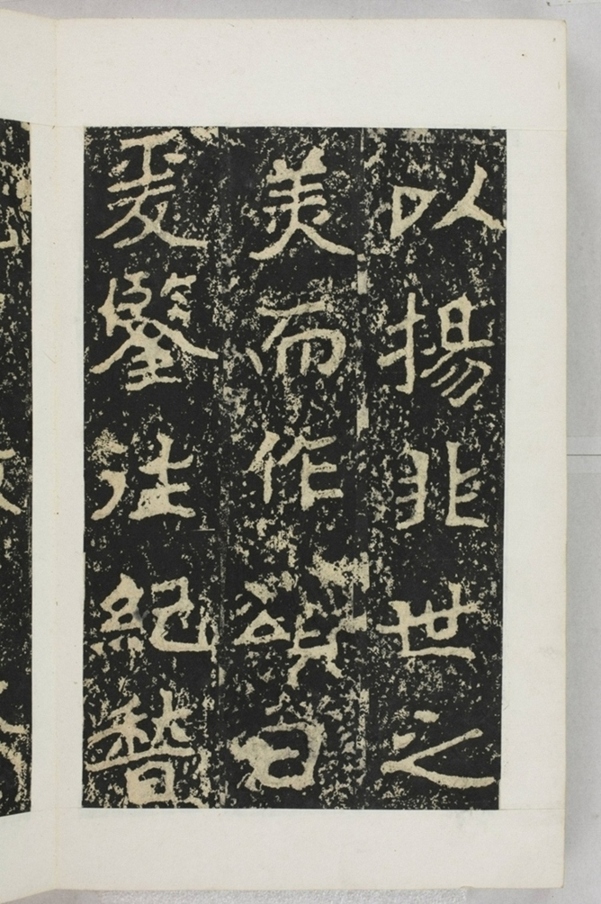 以揚非世之
美而作頌曰
爰鑒往紀稽